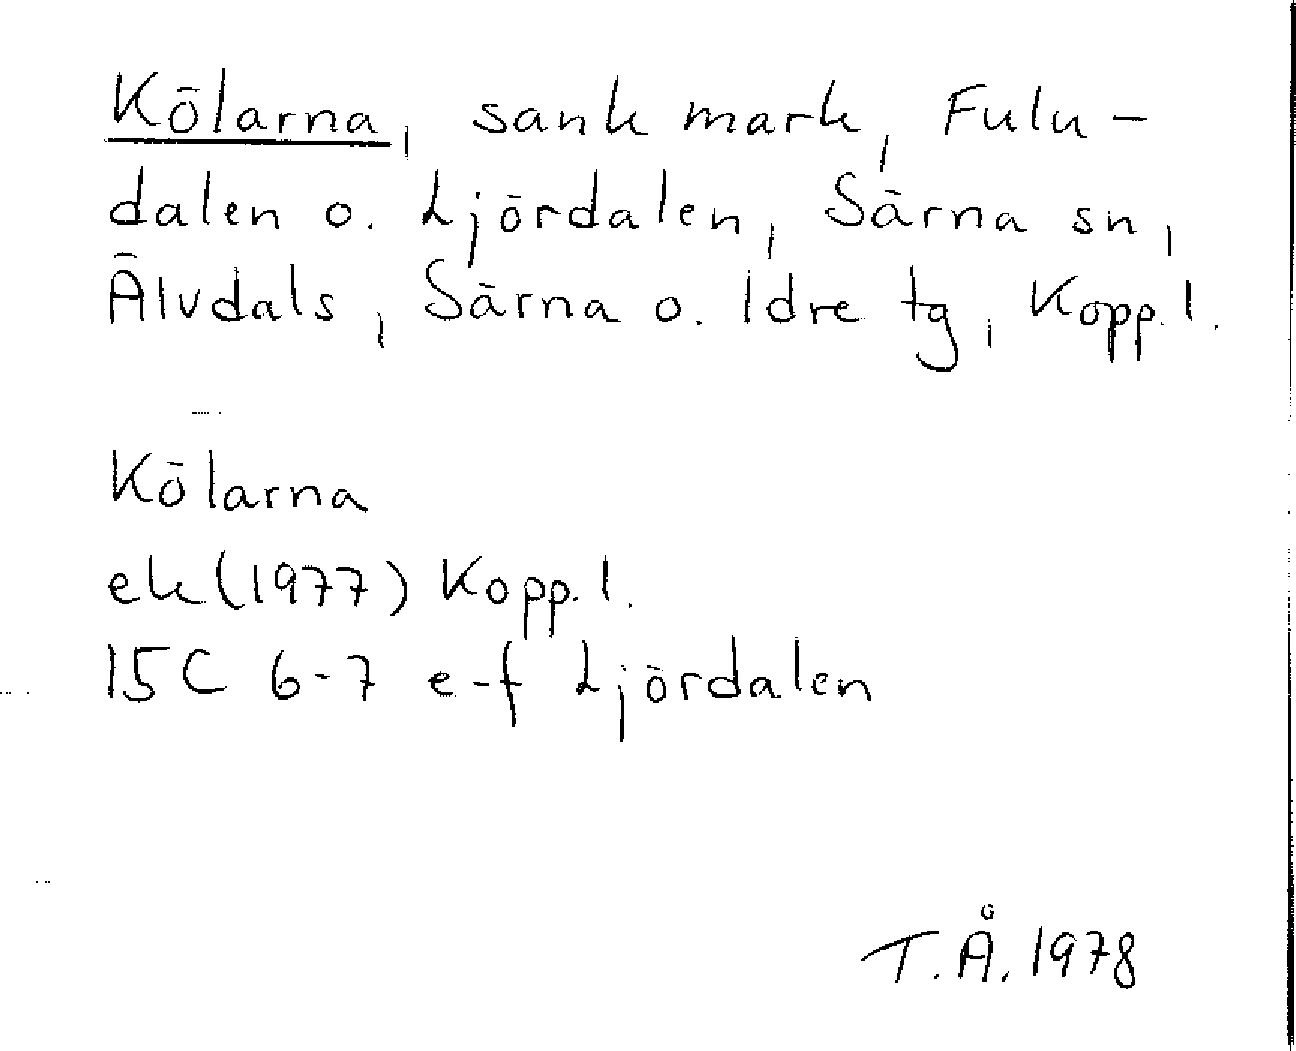 Kölarna, sank mark, Fulu-
dalen o. Ljördalen, Särna sn,
Älvdals, Särna o. Idre tg, Kopp. l.
Kölarna
ek (1977) Kopp. l.
15C 6-7 e-f Ljördalen
T.Å. 1978